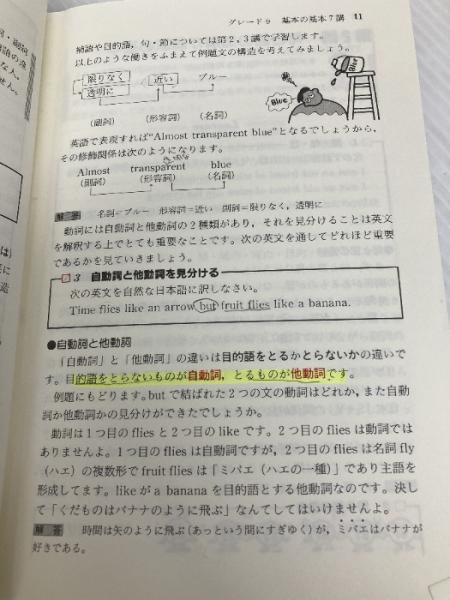 グレード9　基本の基本7講　11
補語や目的語，句・節については第2，3講で学習します。
以上のような働きをふまえて例題文の構造を考えてみましょう。
限りなく　近い　ブルー
透明に
（副詞）　（形容詞）　（名詞）
Blue
Blue
英語で表現すれば“Almost transparent blue”となるでしょうから，
その修飾関係は次のようになります。
Almost　transparent　blue
（副詞）　（形容詞）　（名詞）
解答　名詞=ブルー　形容詞=近い　副詞=限りなく，透明に
動詞には自動詞と他動詞の2種類があり，それを見分けることは英文
を解釈する上でとても重要なことです。次の英文を通してどれほど重要
であるかを見ていきましょう。
3　自動詞と他動詞を見分ける
次の英文を自然な日本語に訳しなさい。
Time flies like an arrow but fruit flies like a banana.
●自動詞と他動詞
「自動詞」と「他動詞」の違いは目的語をとるかとらないかの違いで
す。目的語をとらないものが自動詞，とるものが他動詞です。
例題にもどります。butで結ばれた2つの文の動詞はどれか，また自動
詞か他動詞かの見分けができたでしょうか。
動詞は1つ目のfliesと2つ目のlikeです。2つ目のfliesは動詞では
ありませんよ。1つ目のfliesは自動詞ですが，2つ目のfliesは名詞fly
（ハエ）の複数形でfruit fliesは「ミバエ（ハエの一種）」であり主語を
形成してます。likeがa bananaを目的語とする他動詞なのです。決し
て「くだものはバナナのように飛ぶ」なんてしてはいけませんよ。
解答　時間は矢のように飛ぶ(あっという間にすぎゆく)が，ミバエはバナナが
好きである。